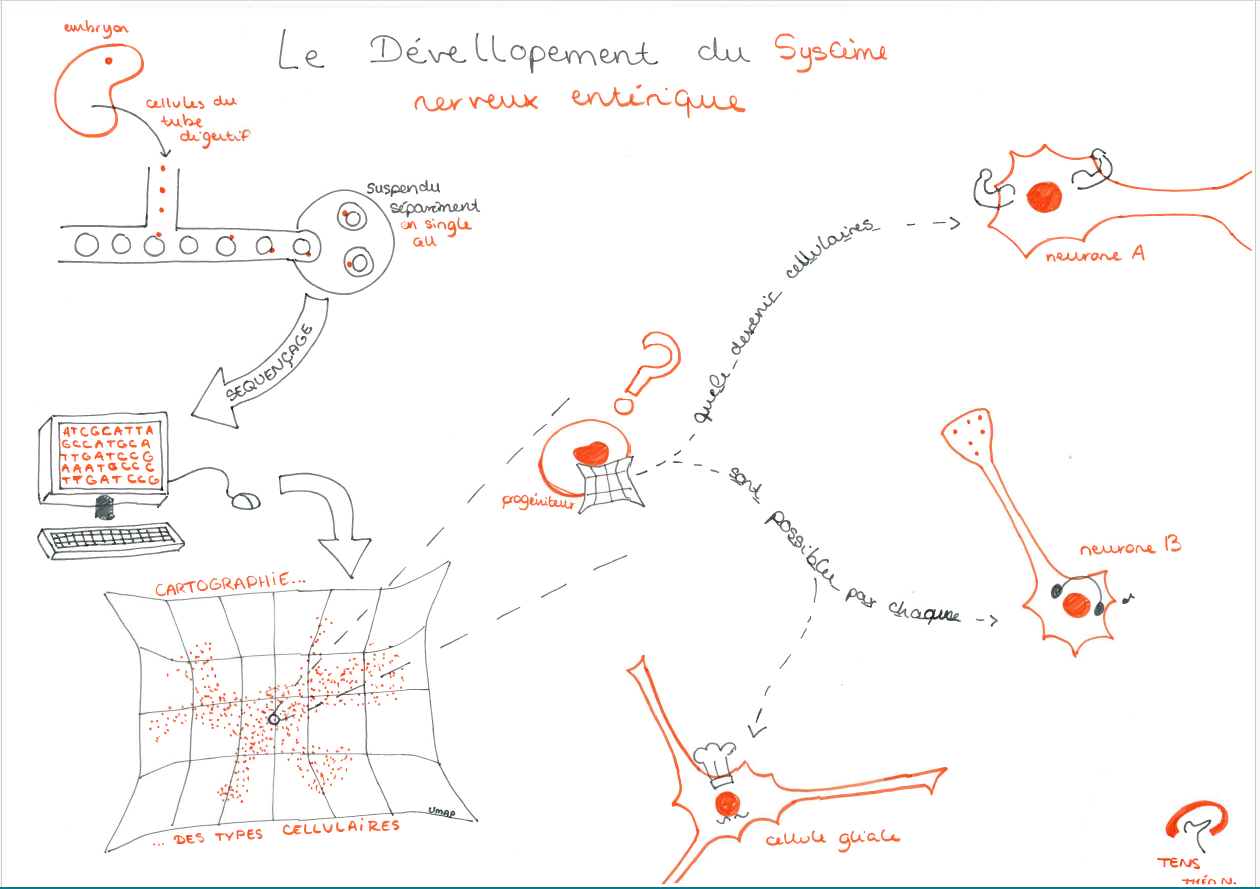 embryon
Le Dévellopement du Système
nerveux entérique
cellules du
tube
digestif
suspendu
séparément
en single
cell
SEQUENÇAGE
ATCGCATTA
GCCATGCA
TTGATCCG
AAATGCCC
TTGATCCG
CARTOGRAPHIE...
... DES TYPES CELLULAIRES
UMAP
?
progéniteur
quels devenir cellulaires
sont possible par chaque
neurone A
neurone B
cellule gliale
TENS
THÉO N.